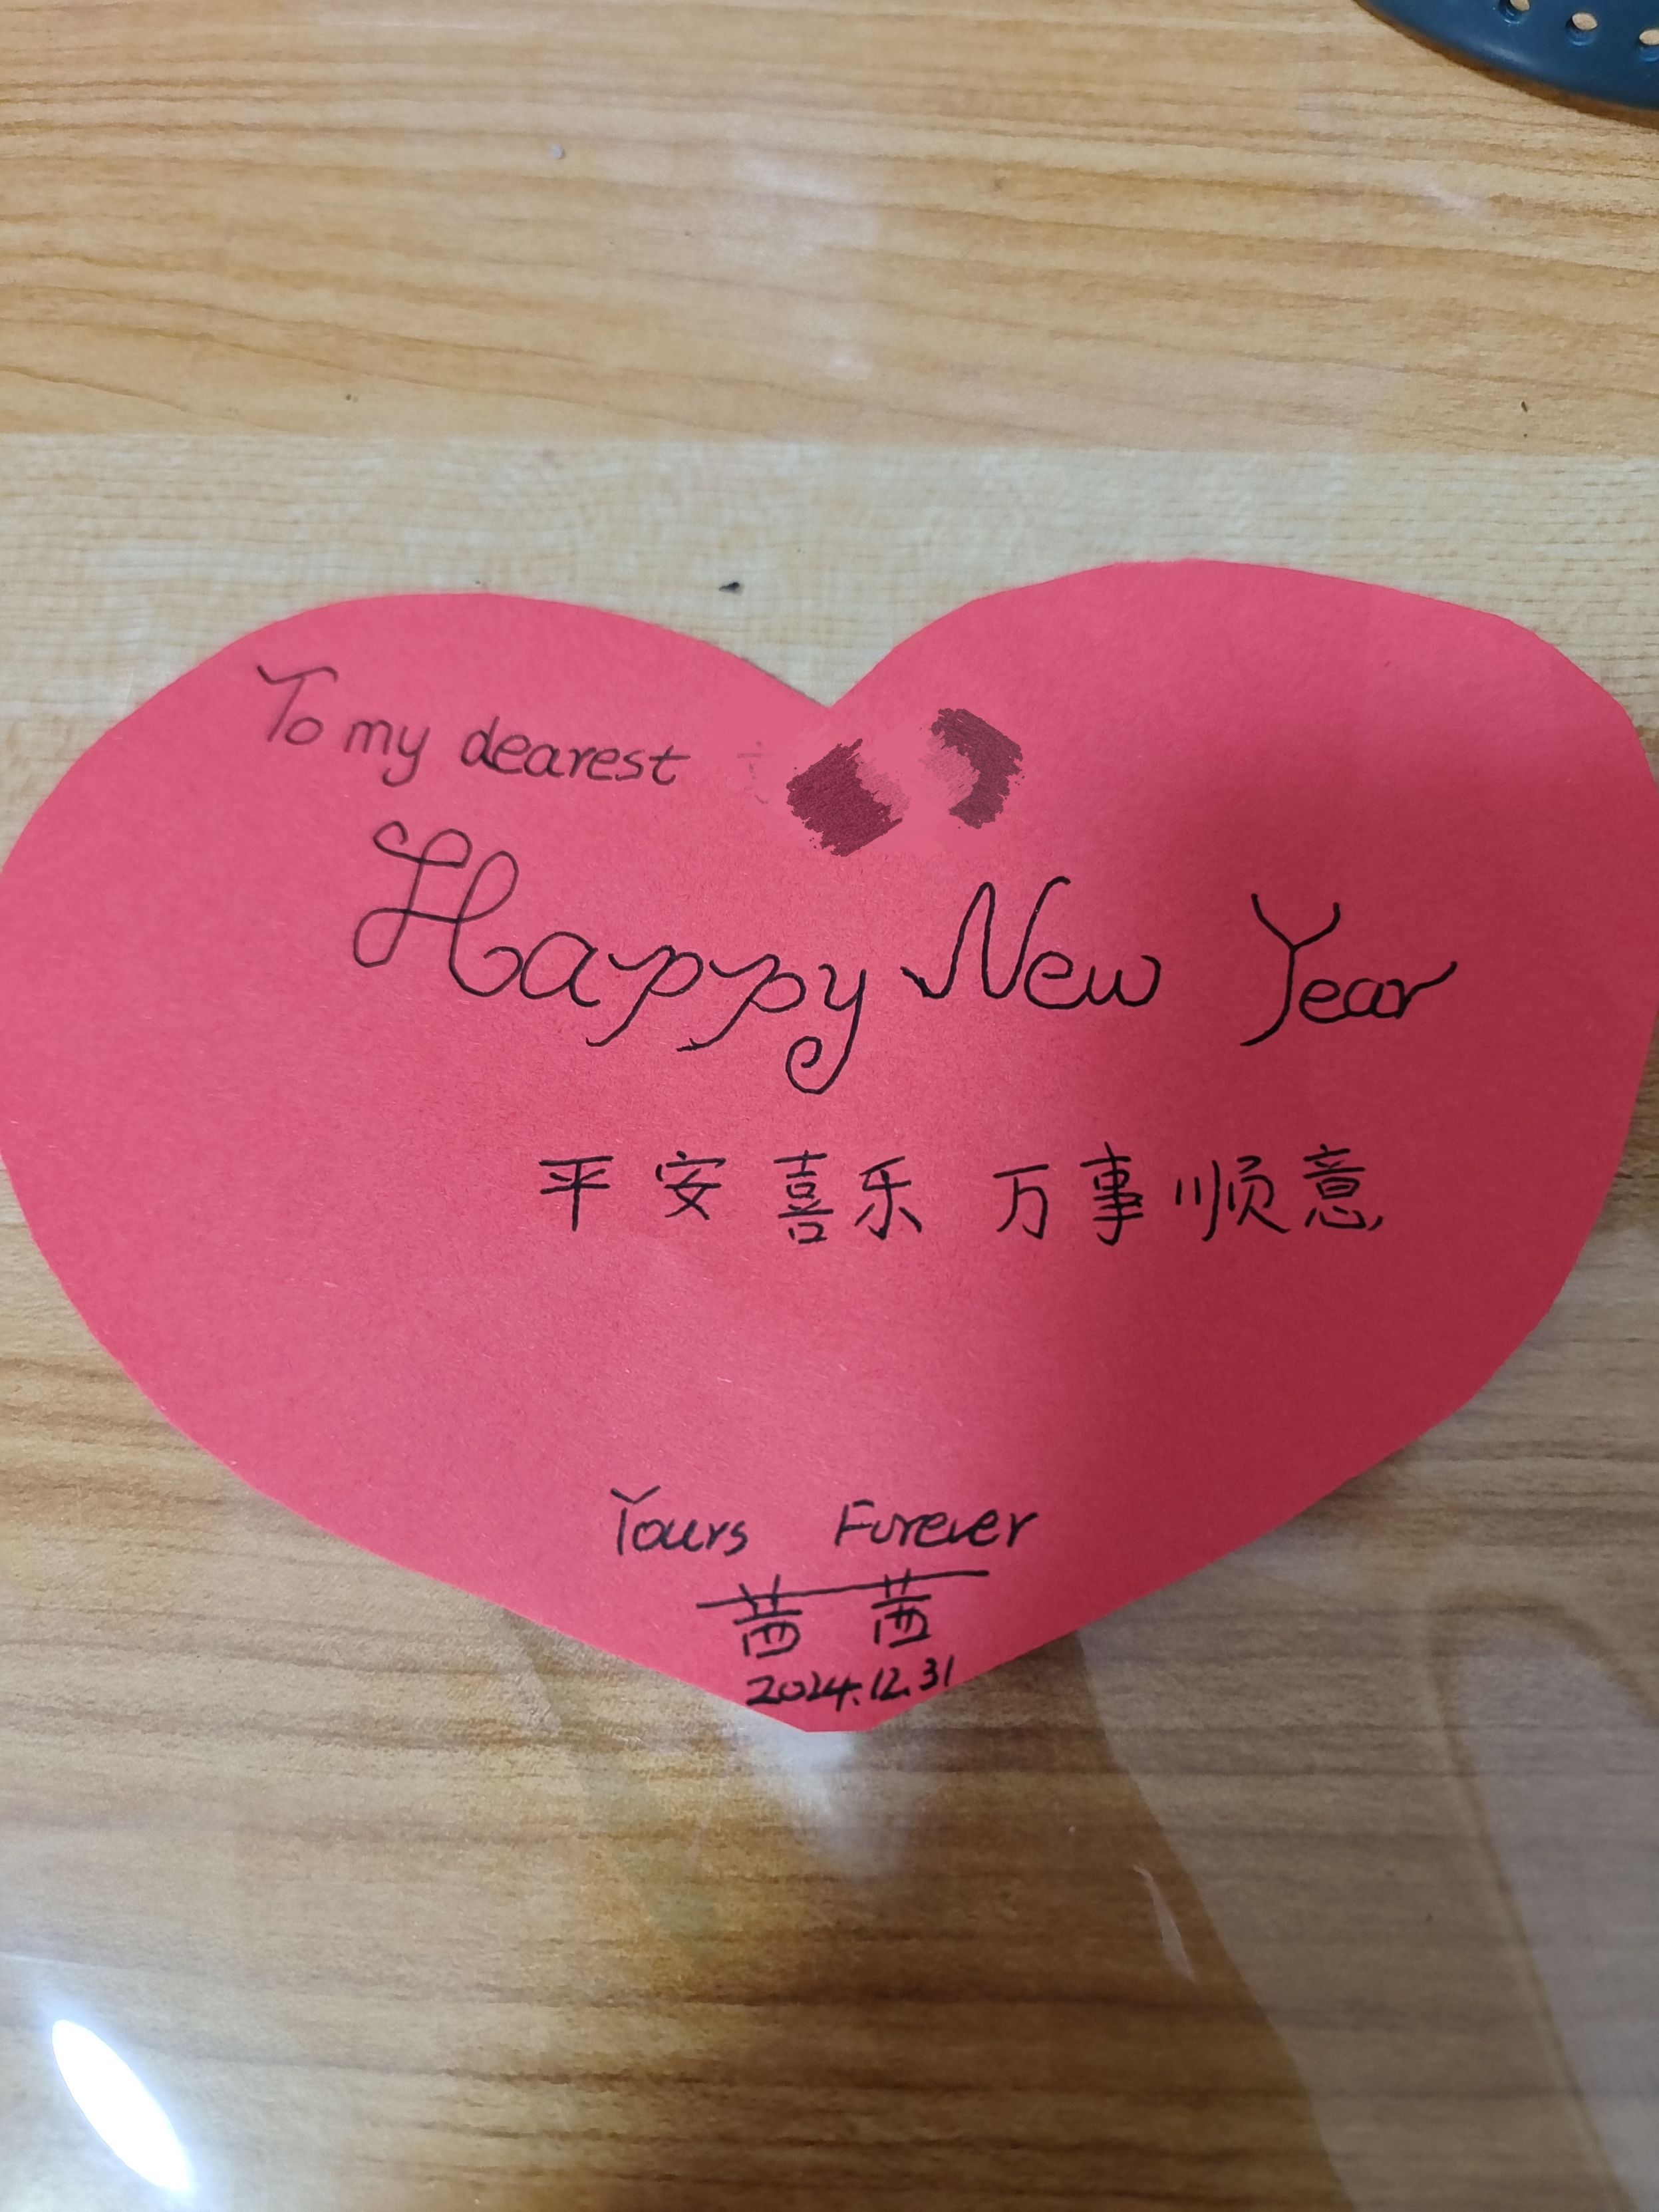 To my dearest
Happy New Year
平安喜乐 万事顺意
Yours Forever
茜茜
2024.12.31